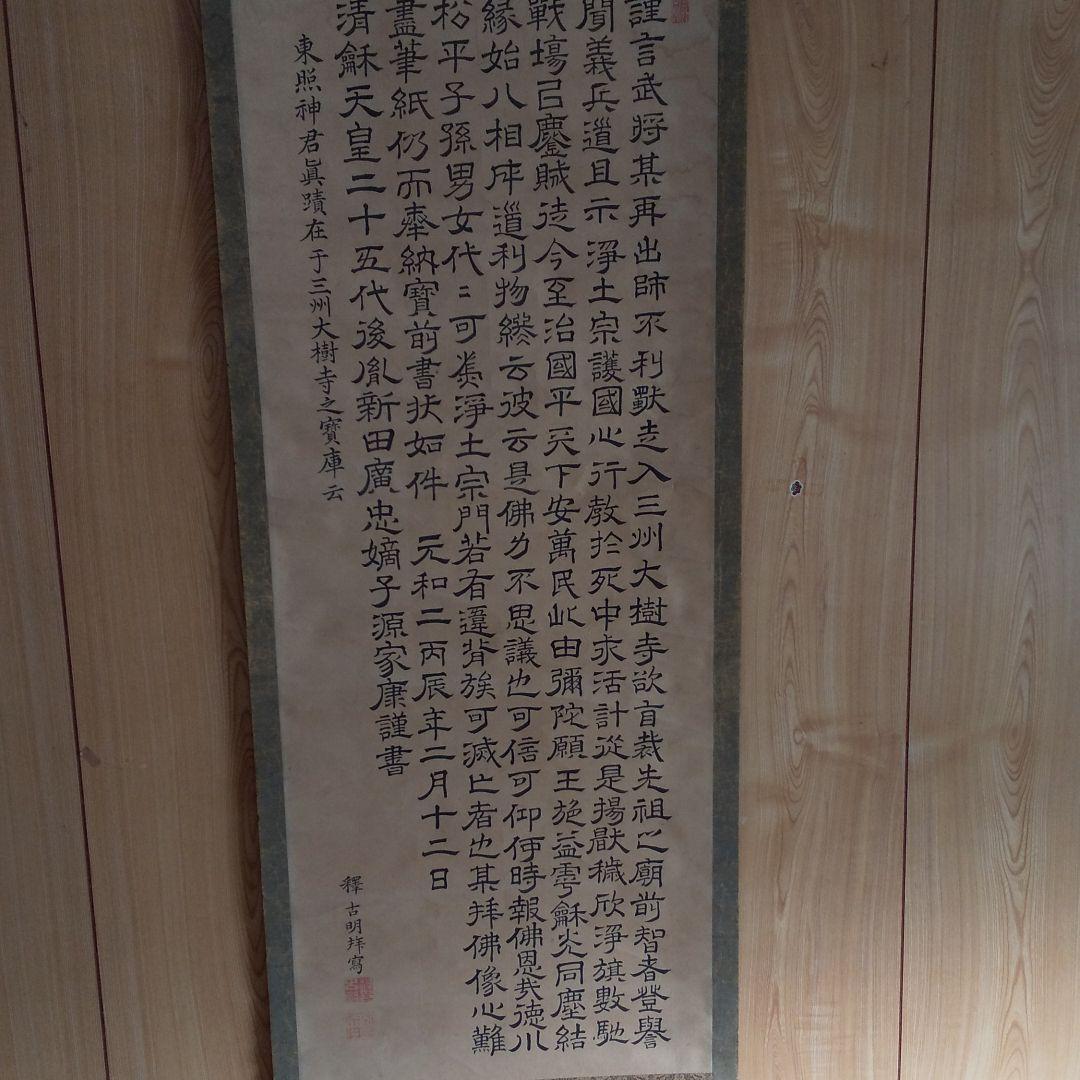 謹言武将某再出師不利獸走入三州大樹寺欲盲裁先祖之廟前智者登譽
聞義兵道且示淨土宗護國心行教於死中求活計從是揚厭穢欣淨旗數馳
戰場已鏖賊徒今至治國平天下安萬民此由彌陀願王施益雩龢光同塵結
緣始八相成道利物終云彼云是佛力不思議也可信可仰何時報佛恩哉德川
松平子孫男女代〻可為淨土宗門若有違背族可滅亡者也某拜佛像心難
盡筆紙仍而奉納寶前書狀如件 元和二丙辰年二月十二日
清龢天皇二十五代後胤新田廣忠嫡子源家康謹書
東照神君眞蹟在于三州大樹寺之寶庫云
釋古明拜寫